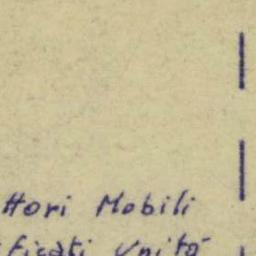 ttori Mobili
ficati Unità